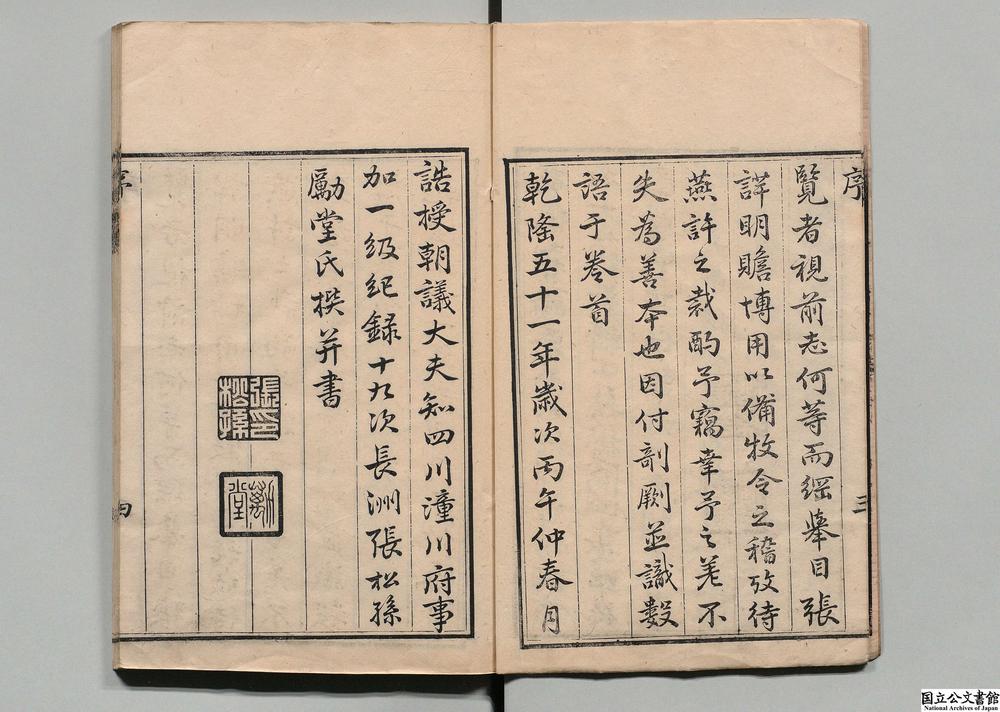 序 三
覽者視前志何等而綱舉目張
詳明贍博用以備牧令之稽攷待
燕許之裁酌予竊幸予之差不
失為善本也因付剞劂並識數
語于卷首
乾隆五十一年歲次丙午仲春月
誥授朝議大夫知四川潼川府事
加一級紀錄十九次長洲張松孫
勵堂氏撰并書
張印
松孫
勵堂
序 四
国立公文書館
National Archives of Japan